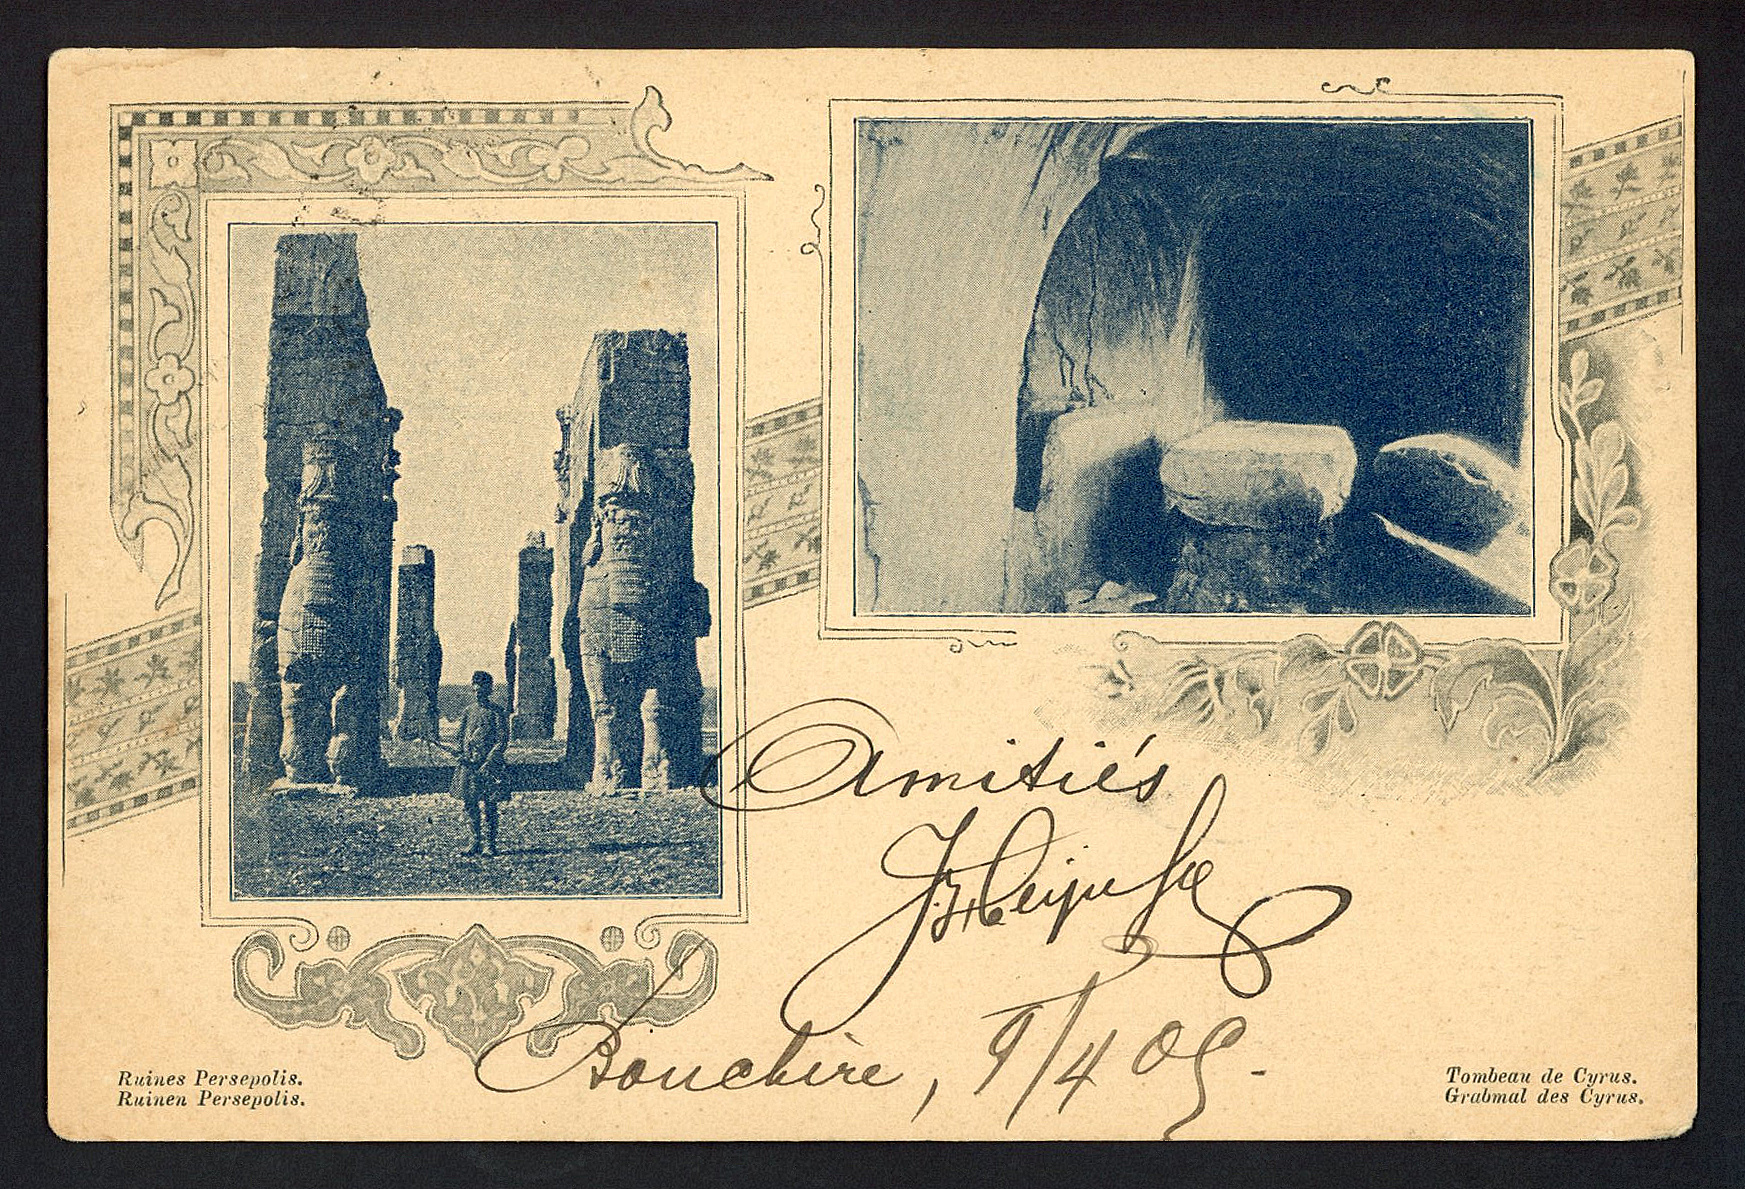 Amitiés
Bouchire, 9/4 05.
Ruines Persepolis.
Ruinen Persepolis.
Tombeau de Cyrus.
Grabmal des Cyrus.